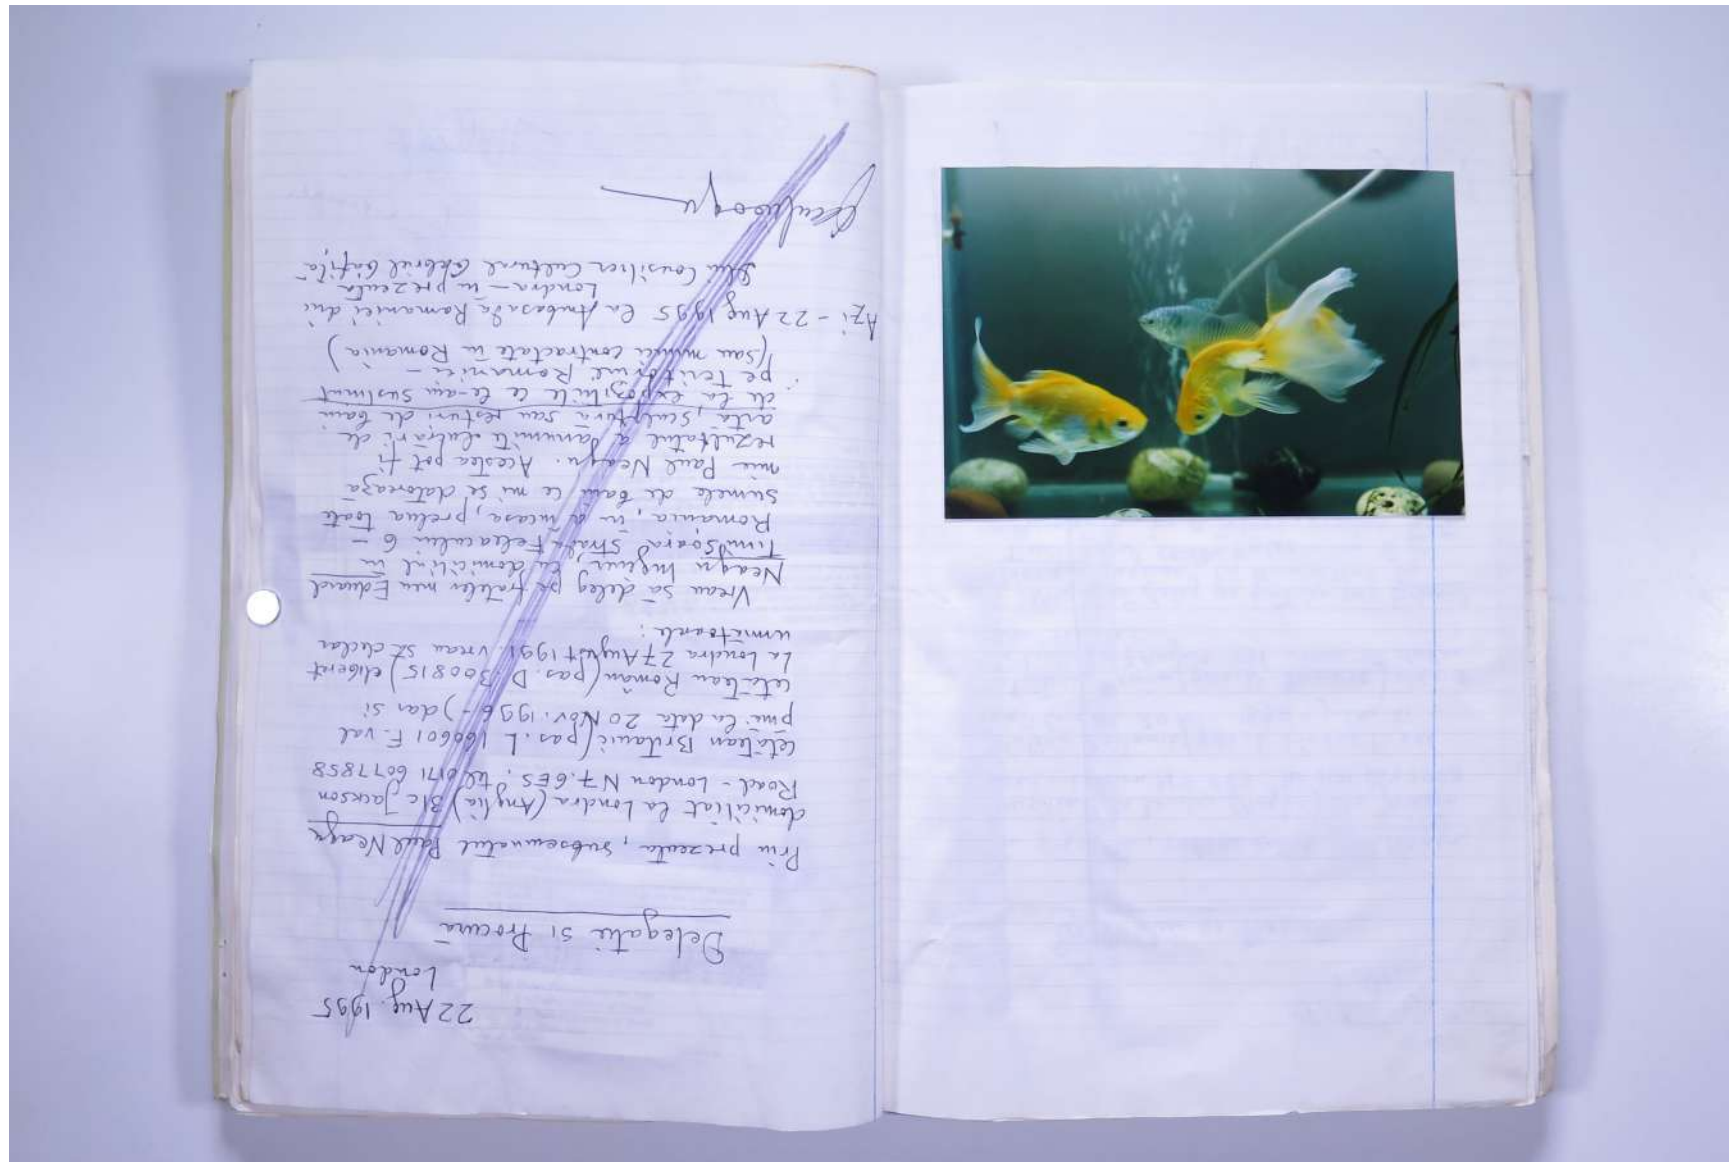 22 Aug. 1995
London
Delegatie si Procură
Prin prezenta, subsemnatul Paul Neagu
domiciliat la Londra (Anglia) 31c Jackson
Road - London N7.6ES. tel 0171 6077858
cetătean Britanic (pas. L 160601 F. val
pînă la data 20 Nov. 1996 -) dar si
cetătean Român (pas. D. 300815) eliberat
La Londra 27 August 1991. vreau să declar
urmatoarele:
Vreau să deleg pe fratele meu Eduard
Neagu Inginer, cu domiciliul în
Timisoara strada Feleacului 6 -
Romania, în a incasa, prelua toate
sumele de bani ce mi se datorează
mie Paul Neagu. Acestea pot fi
rezultatul a lucrări de
artă, sculptură sau de bani
de la expozitiile ce le-am sustinut
pe teritoriul Romaniei -
(sau munci contractate în Romania)
Azi - 22 Aug 1995 la Ambasada Romaniei din
Londra - în prezenta
Dlui Consilier Cultural Gabriel Gafita